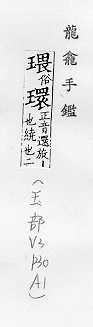 龍龕手鑑
俗環正音還旅丨
也繞也二
(玉部 V3 P30 A1)